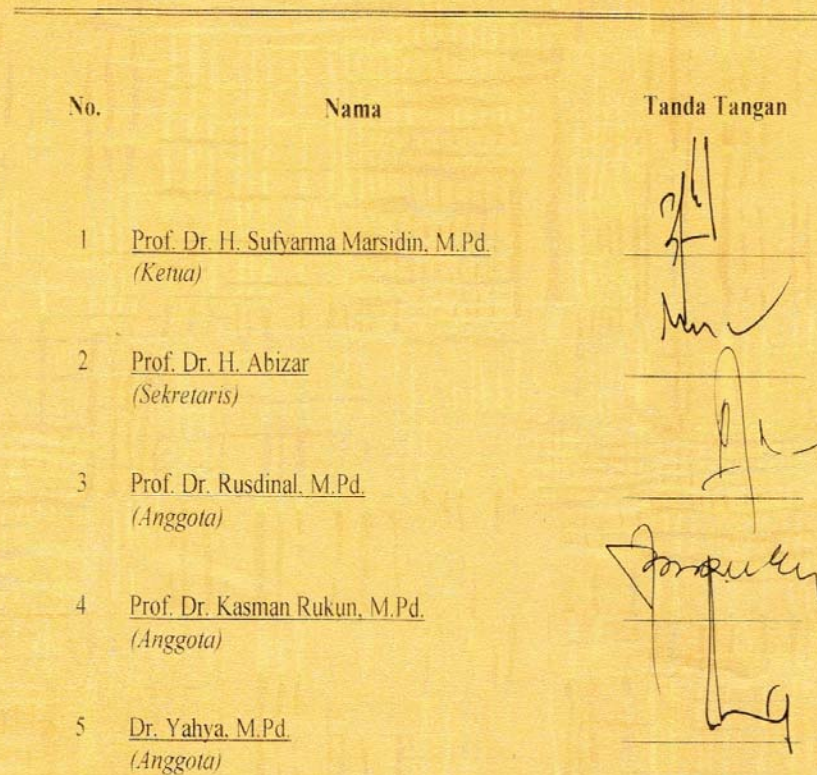 No. Nama Tanda Tangan
1 Prof. Dr. H. Sufyarma Marsidin, M.Pd.
(Ketua)
2 Prof. Dr. H. Abizar
(Sekretaris)
3 Prof. Dr. Rusdinal, M.Pd.
(Anggota)
4 Prof. Dr. Kasman Rukun, M.Pd.
(Anggota)
5 Dr. Yahya, M.Pd.
(Anggota)